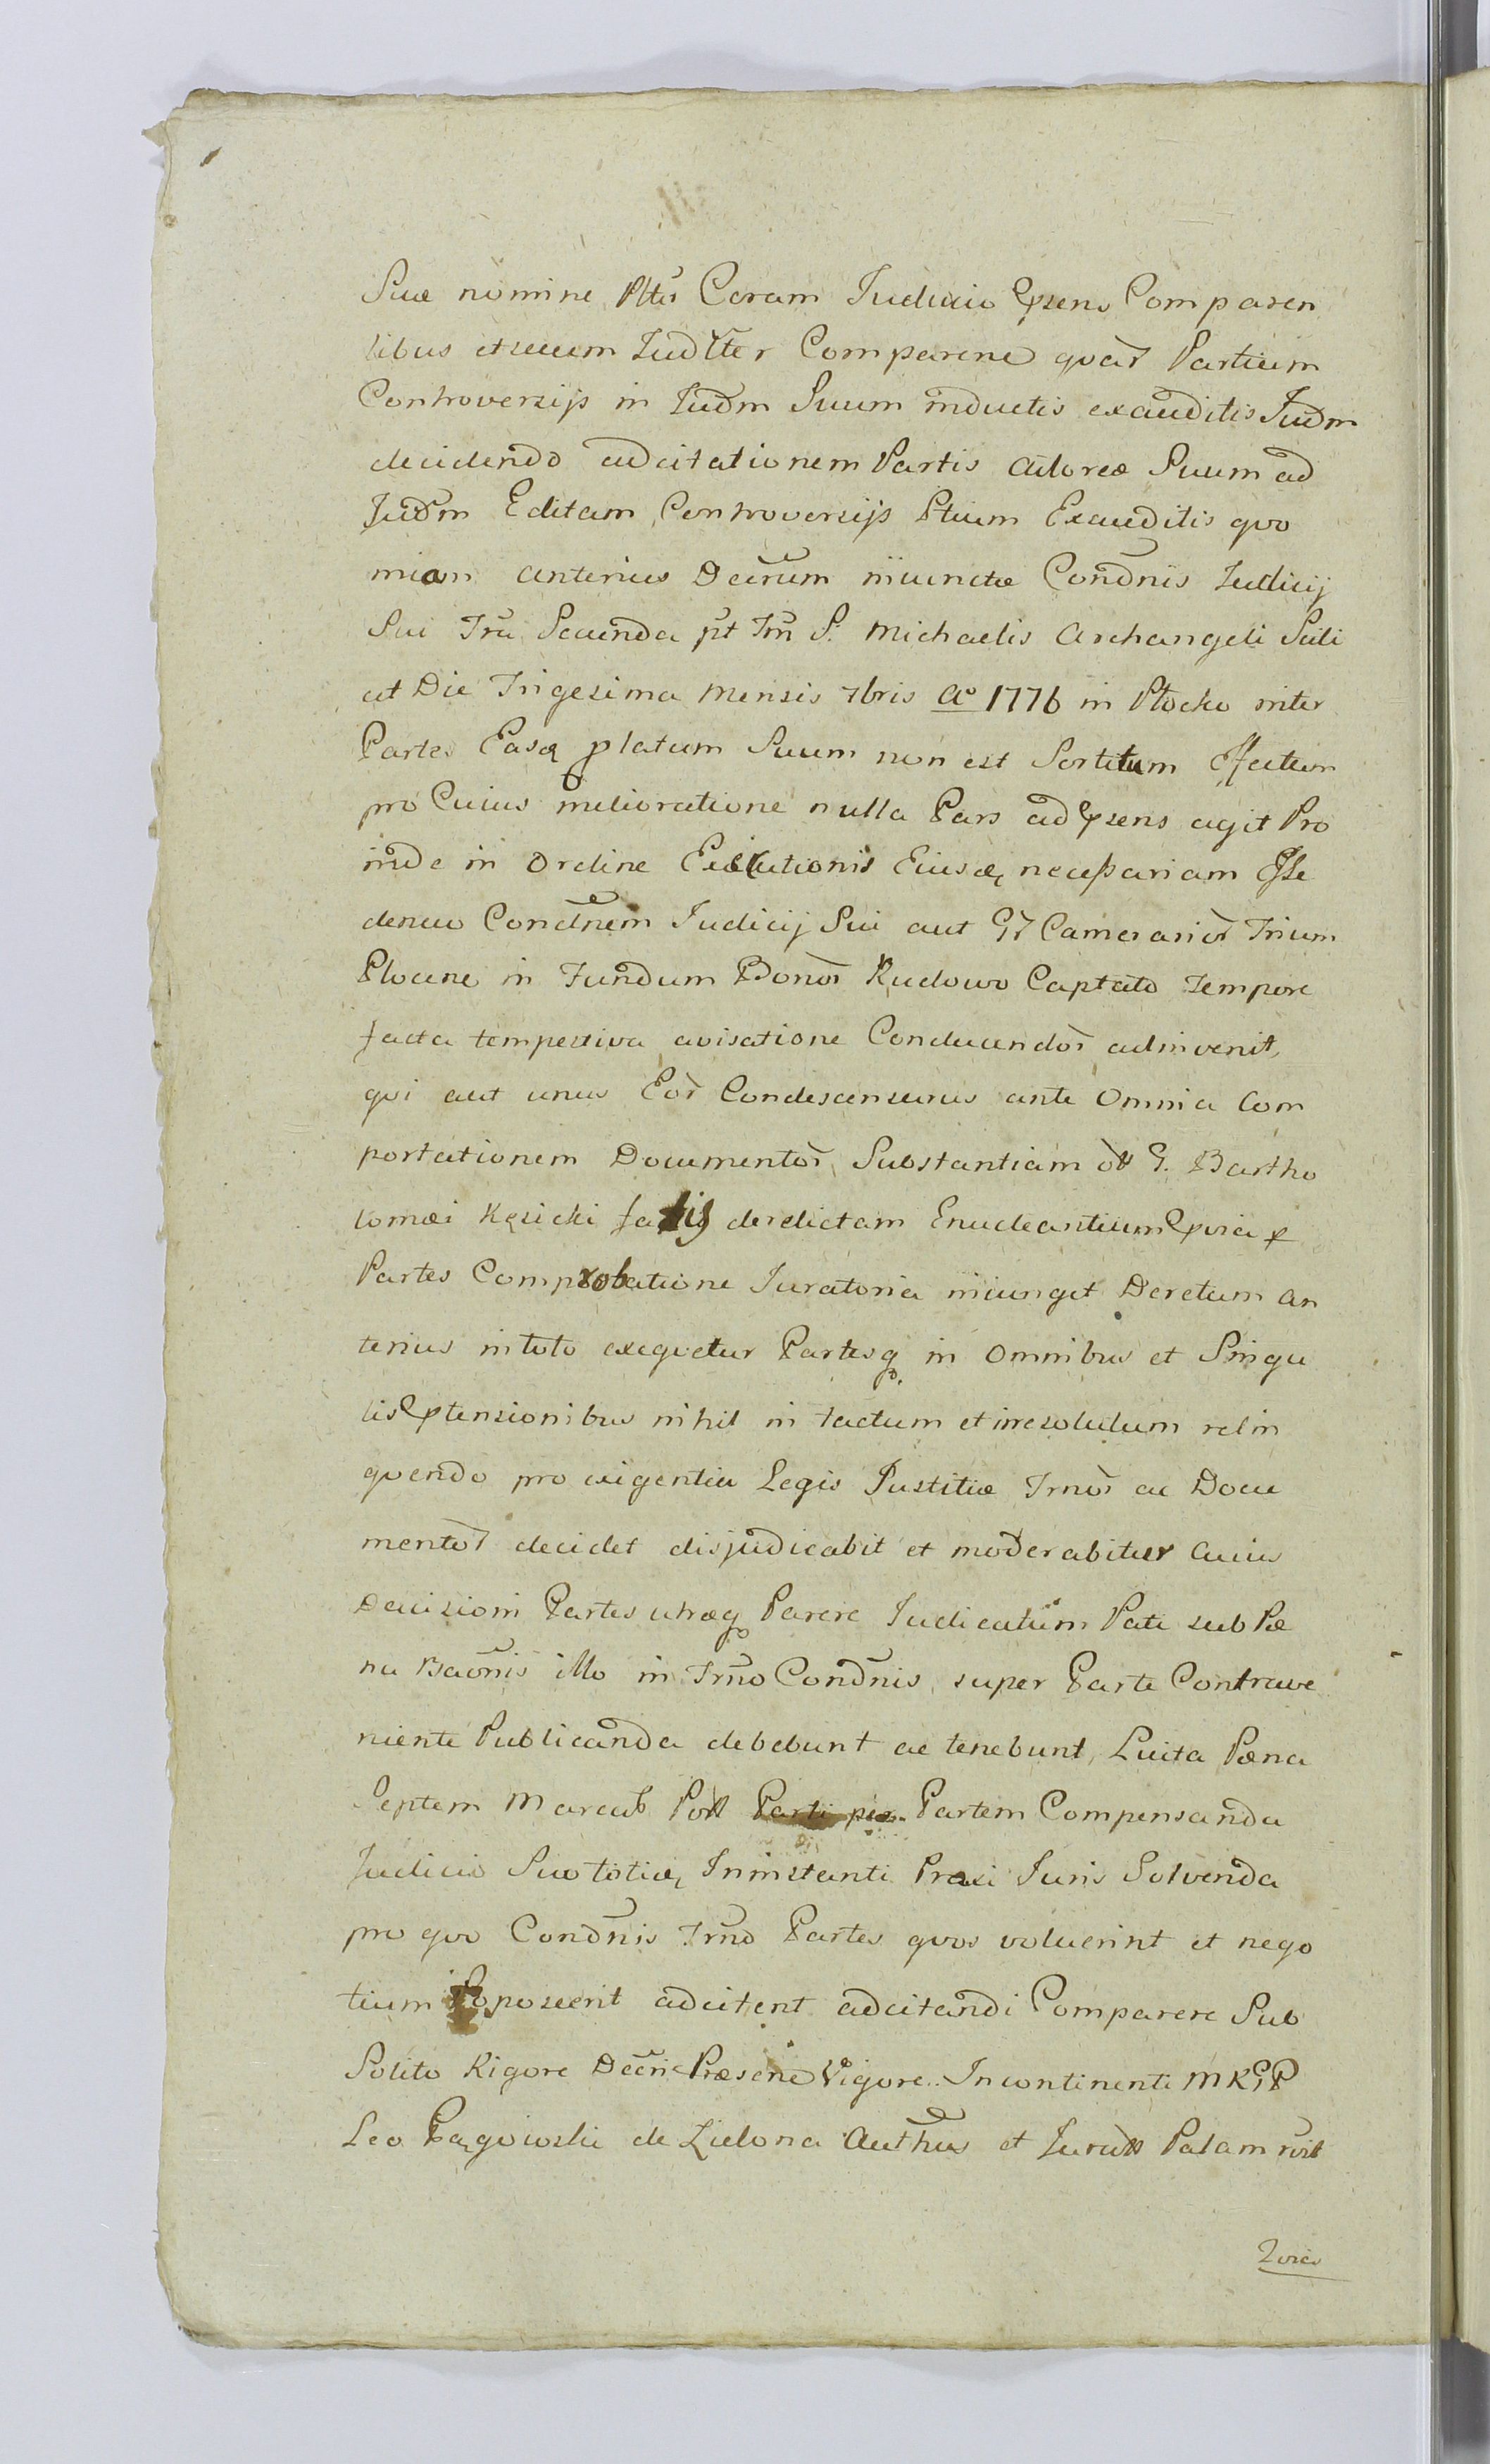 Suæ nomine Pltis Coram Iudicio Præsens Comparen
tibus et secum Iudlter Comparen quar Partium
Controversijs in Iudm Suum inductis exauditis Iudm
decidendo adcitationem Partis Actoreæ Suum ad
Judm Editam, Controversijs Ptium Exauditis quo
niam anterius Decrum iniunctæ Condnis Iudicij
Sui Fria Secunda pt Fm S. Michaelis Archangeli Scili
cet Die Trigesima Mensis 7bris Ao 1776 in Płocko inter
Partes Easq platum Suum non est Sortitum Effectum
pro Cuius melioratione nulla Pars ad præsens agit Pro
inde in Ordine Executionis Eiusd, necessariam Esse
denuo Condnem Iudicij Sui aut GG Camerarior Trium
Plocen in Fundum Bonor Rudowo Captato Tempore
facta tempestiva avisatione Conducendor adinvenit,
qui aut unus Eor Condescensurus ante Omnia Com
portationem Documentor, Substantiam ol G. Bartho
lomæi Kęsicki fatis derelictam Enucleantium prævia p
Partes Comprobatione Juratoria iniunget Decretum an
terius in toto exequetur Partesq in Omnibus et Singu
lis Prætensionibus nihil in tactum et irresolutum relin
quendo pro exigentia Legis Justitiæ Trnor ac Docu
mentor decidet disjudicabit et moderabitur Cuius
Decisioni Partes utræq Parere Iudicatum Pati sub Pæ
na Baonis illo in Trno Condnis, super Parte Contrave
niente Publicanda debebunt ac tenebunt, Luita Pæna
Septem Marcarb Poll Parti per Partem Compensanda
Judicio Suo totid, In instanti Praxi Juris Solvenda
pro quo Condnis Trno Partes quos voluerint et nego
tium Poposcerit adcitent adcitandi Comparere Sub
Solito Rigore Decri Præsen Vigore. In continenti MKGP
Leo Pągowski de Zielona Authus et Jurall Palam rvit
2vics